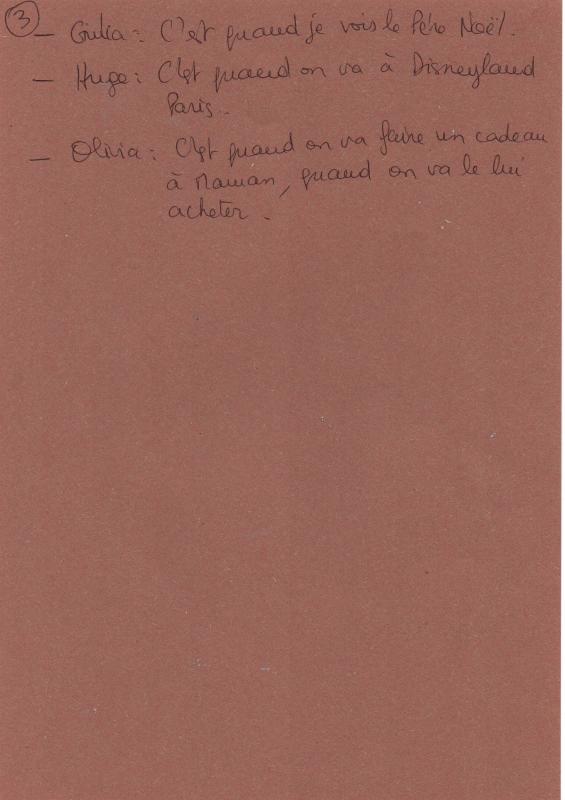 ③ – Giulia : C'est quand je vois le Père Noël.
– Hugo : C'est quand on va à Disneyland
Paris.
– Olivia : C'est quand on va faire un cadeau
à Maman, quand on va le lui
acheter.